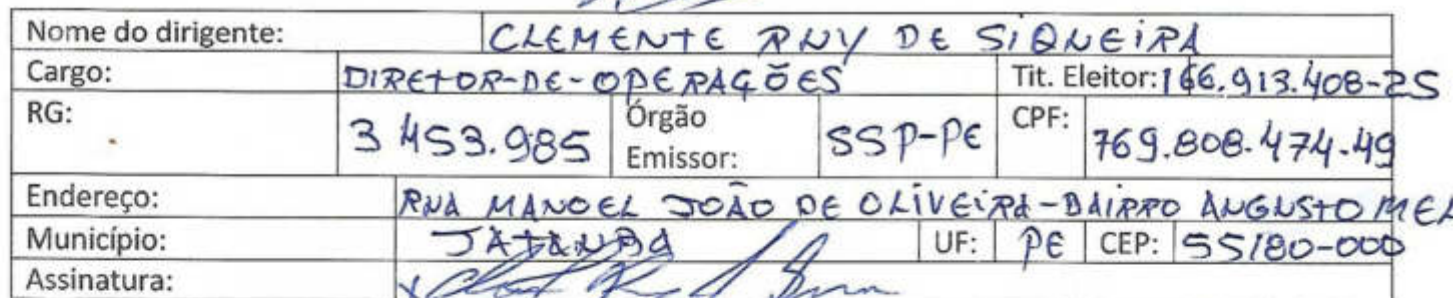 Nome do dirigente: CLEMENTE RUY DE SIQUEIRA
Cargo: DIRETOR-DE-OPERAÇÕES Tit. Eleitor: 166.913.408-25
RG: 3 453.985 Órgão Emissor: SSP-PE CPF: 769.808.474.49
Endereço: RUA MANOEL JOÃO DE OLIVEIRA-BAIRRO AUGUSTO
Município: JATAUBA UF: PE CEP: 55180-000
Assinatura: